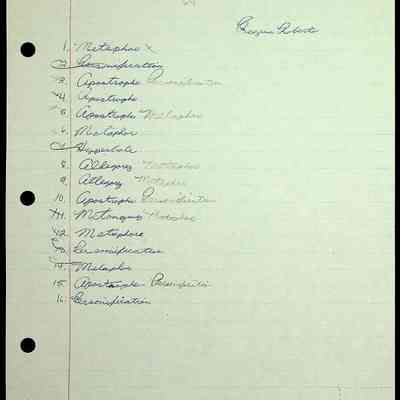 64
1. Metaphor X
2. Personification
3. Apostrophe Personification
4. Apostrophe
5. Apostrophe Metaphor
6. Metaphor
7. Hyperbole
8. Allegory Metaphor
9. Allegory Metaphor
10. Apostrophe Personification
11. Metonymy Metaphor
12. Metaphor
13. Personification
14. Metaphor
15. Apostrophe Personification
16. Personification